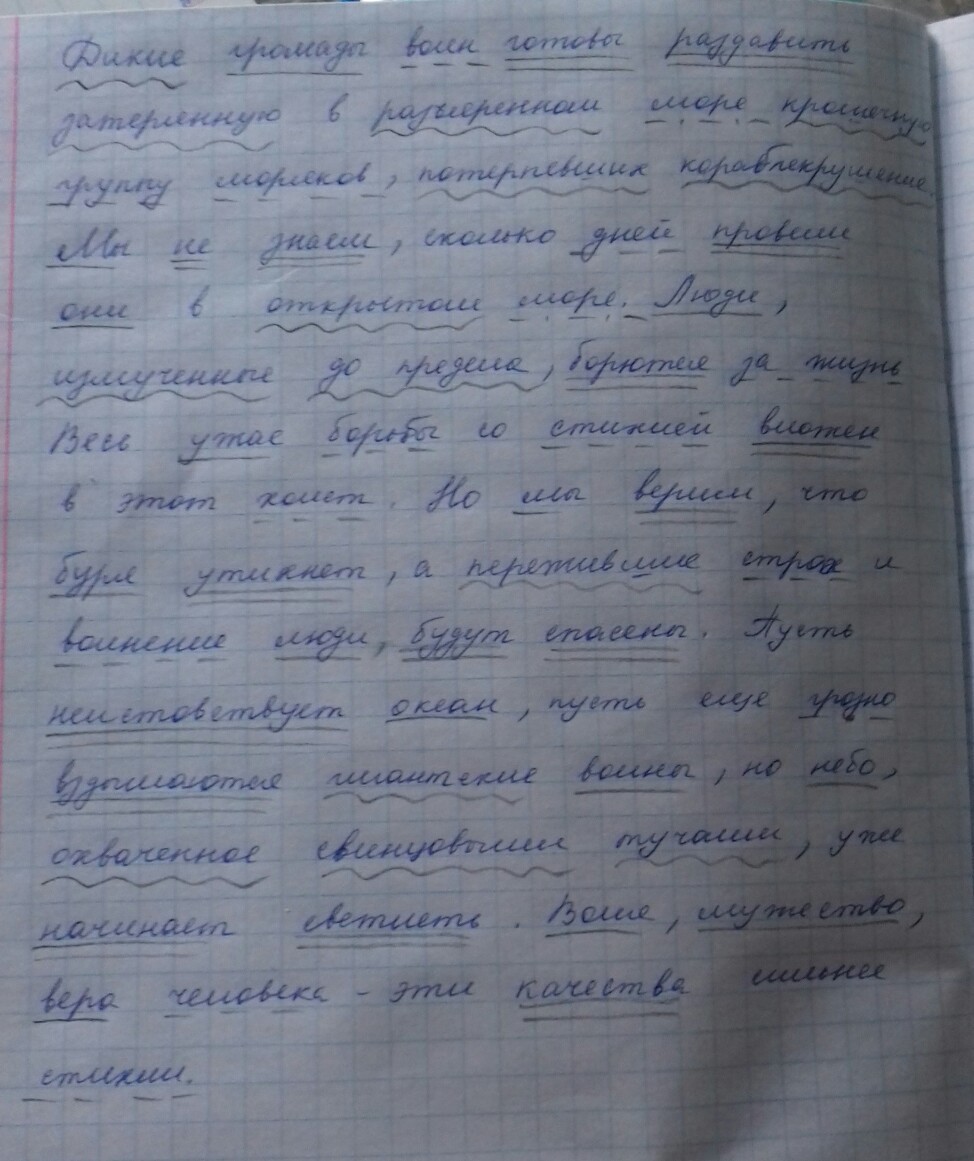 Дикие громады волн готовы раздавить
затерленную в разъяренном море крошечную
группу моряков, потерпевших кораблекрушение.
Мы не знаем, сколько дней провели
они в открытом море. Люди,
измученные до предела, борются за жизнь
Весь ужас борьбы со стихией вложен
в этот холст. Но мы верим, что
буря утихнет, а пережившие страх и
волнение люди, будут спасены. Пусть
неистовствует океан, пусть еще грозно
вздымаются гигантские волны, но небо,
охваченное свинцовыми тучами, уже
начинает светлеть. Воля, мужество,
вера человека - эти качества сильнее
стихии.